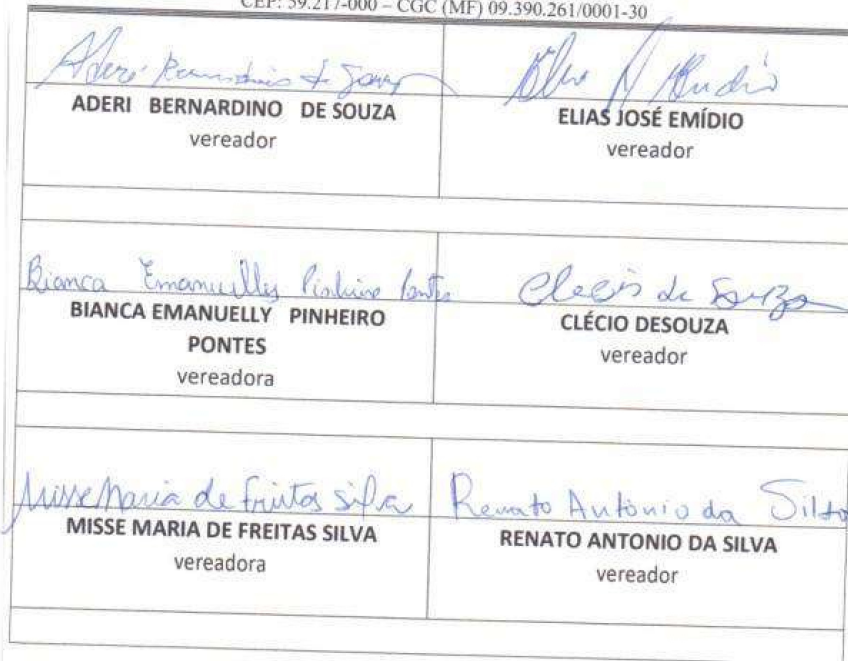 CEP: 59.217-000 – CGC (MF) 09.390.261/0001-30
Aderi Bernardino de Souza
ADERI BERNARDINO DE SOUZA
vereador
ELIAS JOSÉ EMÍDIO
vereador
Bianca Emanuelly Pinheiro Pontes
BIANCA EMANUELLY PINHEIRO
PONTES
vereadora
Clecio de Souza
CLÉCIO DESOUZA
vereador
Misse Maria de Freitas Silva
MISSE MARIA DE FREITAS SILVA
vereadora
Renato Antônio da Silva
RENATO ANTONIO DA SILVA
vereador